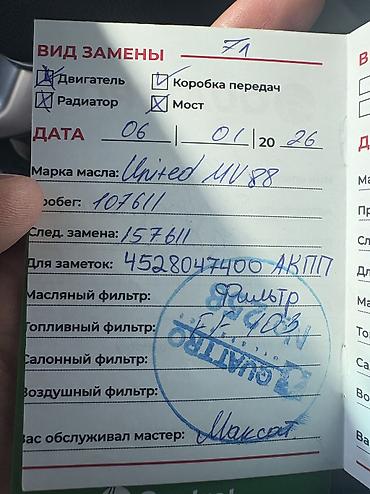 ВИД ЗАМЕНЫ 7л
Двигатель Коробка передач
Радиатор Мост
ДАТА 06 | 01 | 20 26
Марка масла: United MV 88
робег: 107611
След. замена: 157611
Для заметок: 4528047400 АКПП
Масляный фильтр: Фильтр
Топливный фильтр: FF 403
Салонный фильтр:
Воздушный фильтр:
Вас обслуживал мастер: Максат
QUATTRO